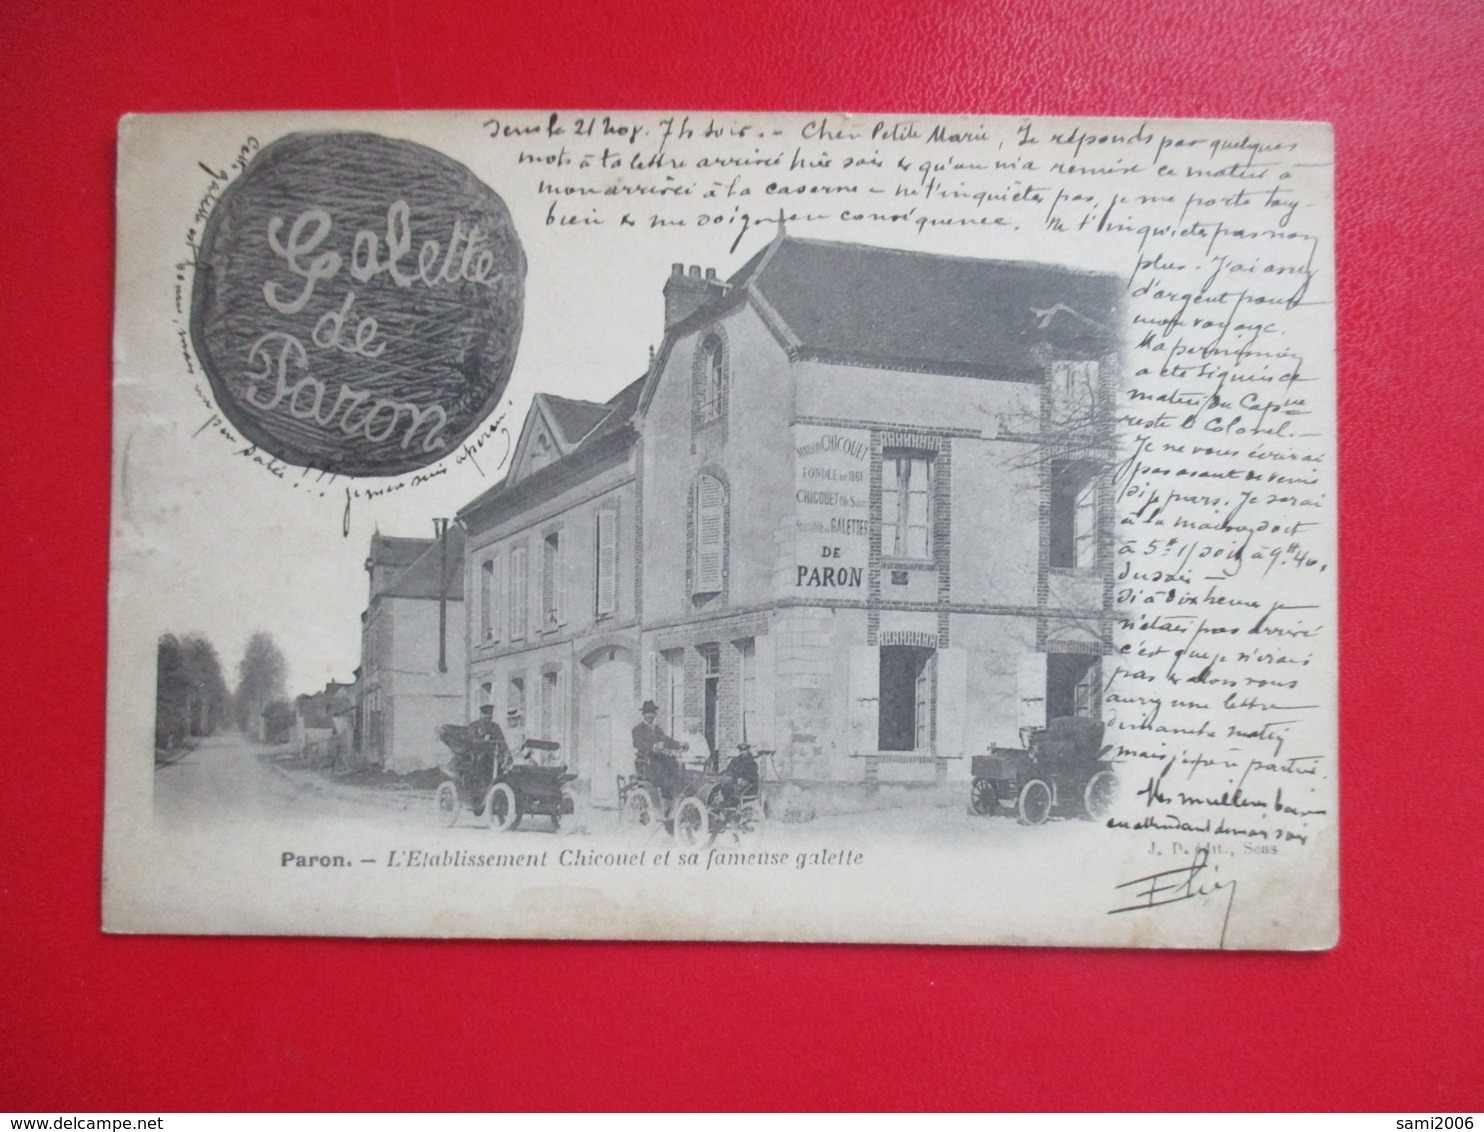 Sens le 21 Nov. 7h Soir. - Chère Petite Marie, Je réponds par quelques
mots à ta lettre arrivée hier soir & qu'on m'a remise ce matin à
mon arrivée à la caserne - ne t'inquiètes pas, je me porte très
bien & me soigne en conséquence. Ne t'inquiètes pas non
plus. J'ai assez
d'argent pour
mon voyage.
Ma permission
a été signée ce
matin du Capne
reste le Colonel. -
Je ne vous écrirai
pas avant de venir
si je pars. Je serai
à la maison soit
à 5h 1/2 soit à 9h 40
du soir -
Si à dix heures je
n'étais pas arrivé
c'est que je n'irais
pas & alors vous
aurez une lettre
dimanche matin
mais j'espère partir.
Mes meilleurs baisers
en attendant demain soir
Cette galette est bonne, mais un peu salée!!! je m'en suis aperçu.
Galette
de
Paron
MAISON CHICOUET
FONDÉE EN 1861
CHICOUET Fils Succr
Spécialité de GALETTES
DE
PARON
Paron. — L'Etablissement Chicouet et sa fameuse galette
J. D. édit., Sens
sami2006